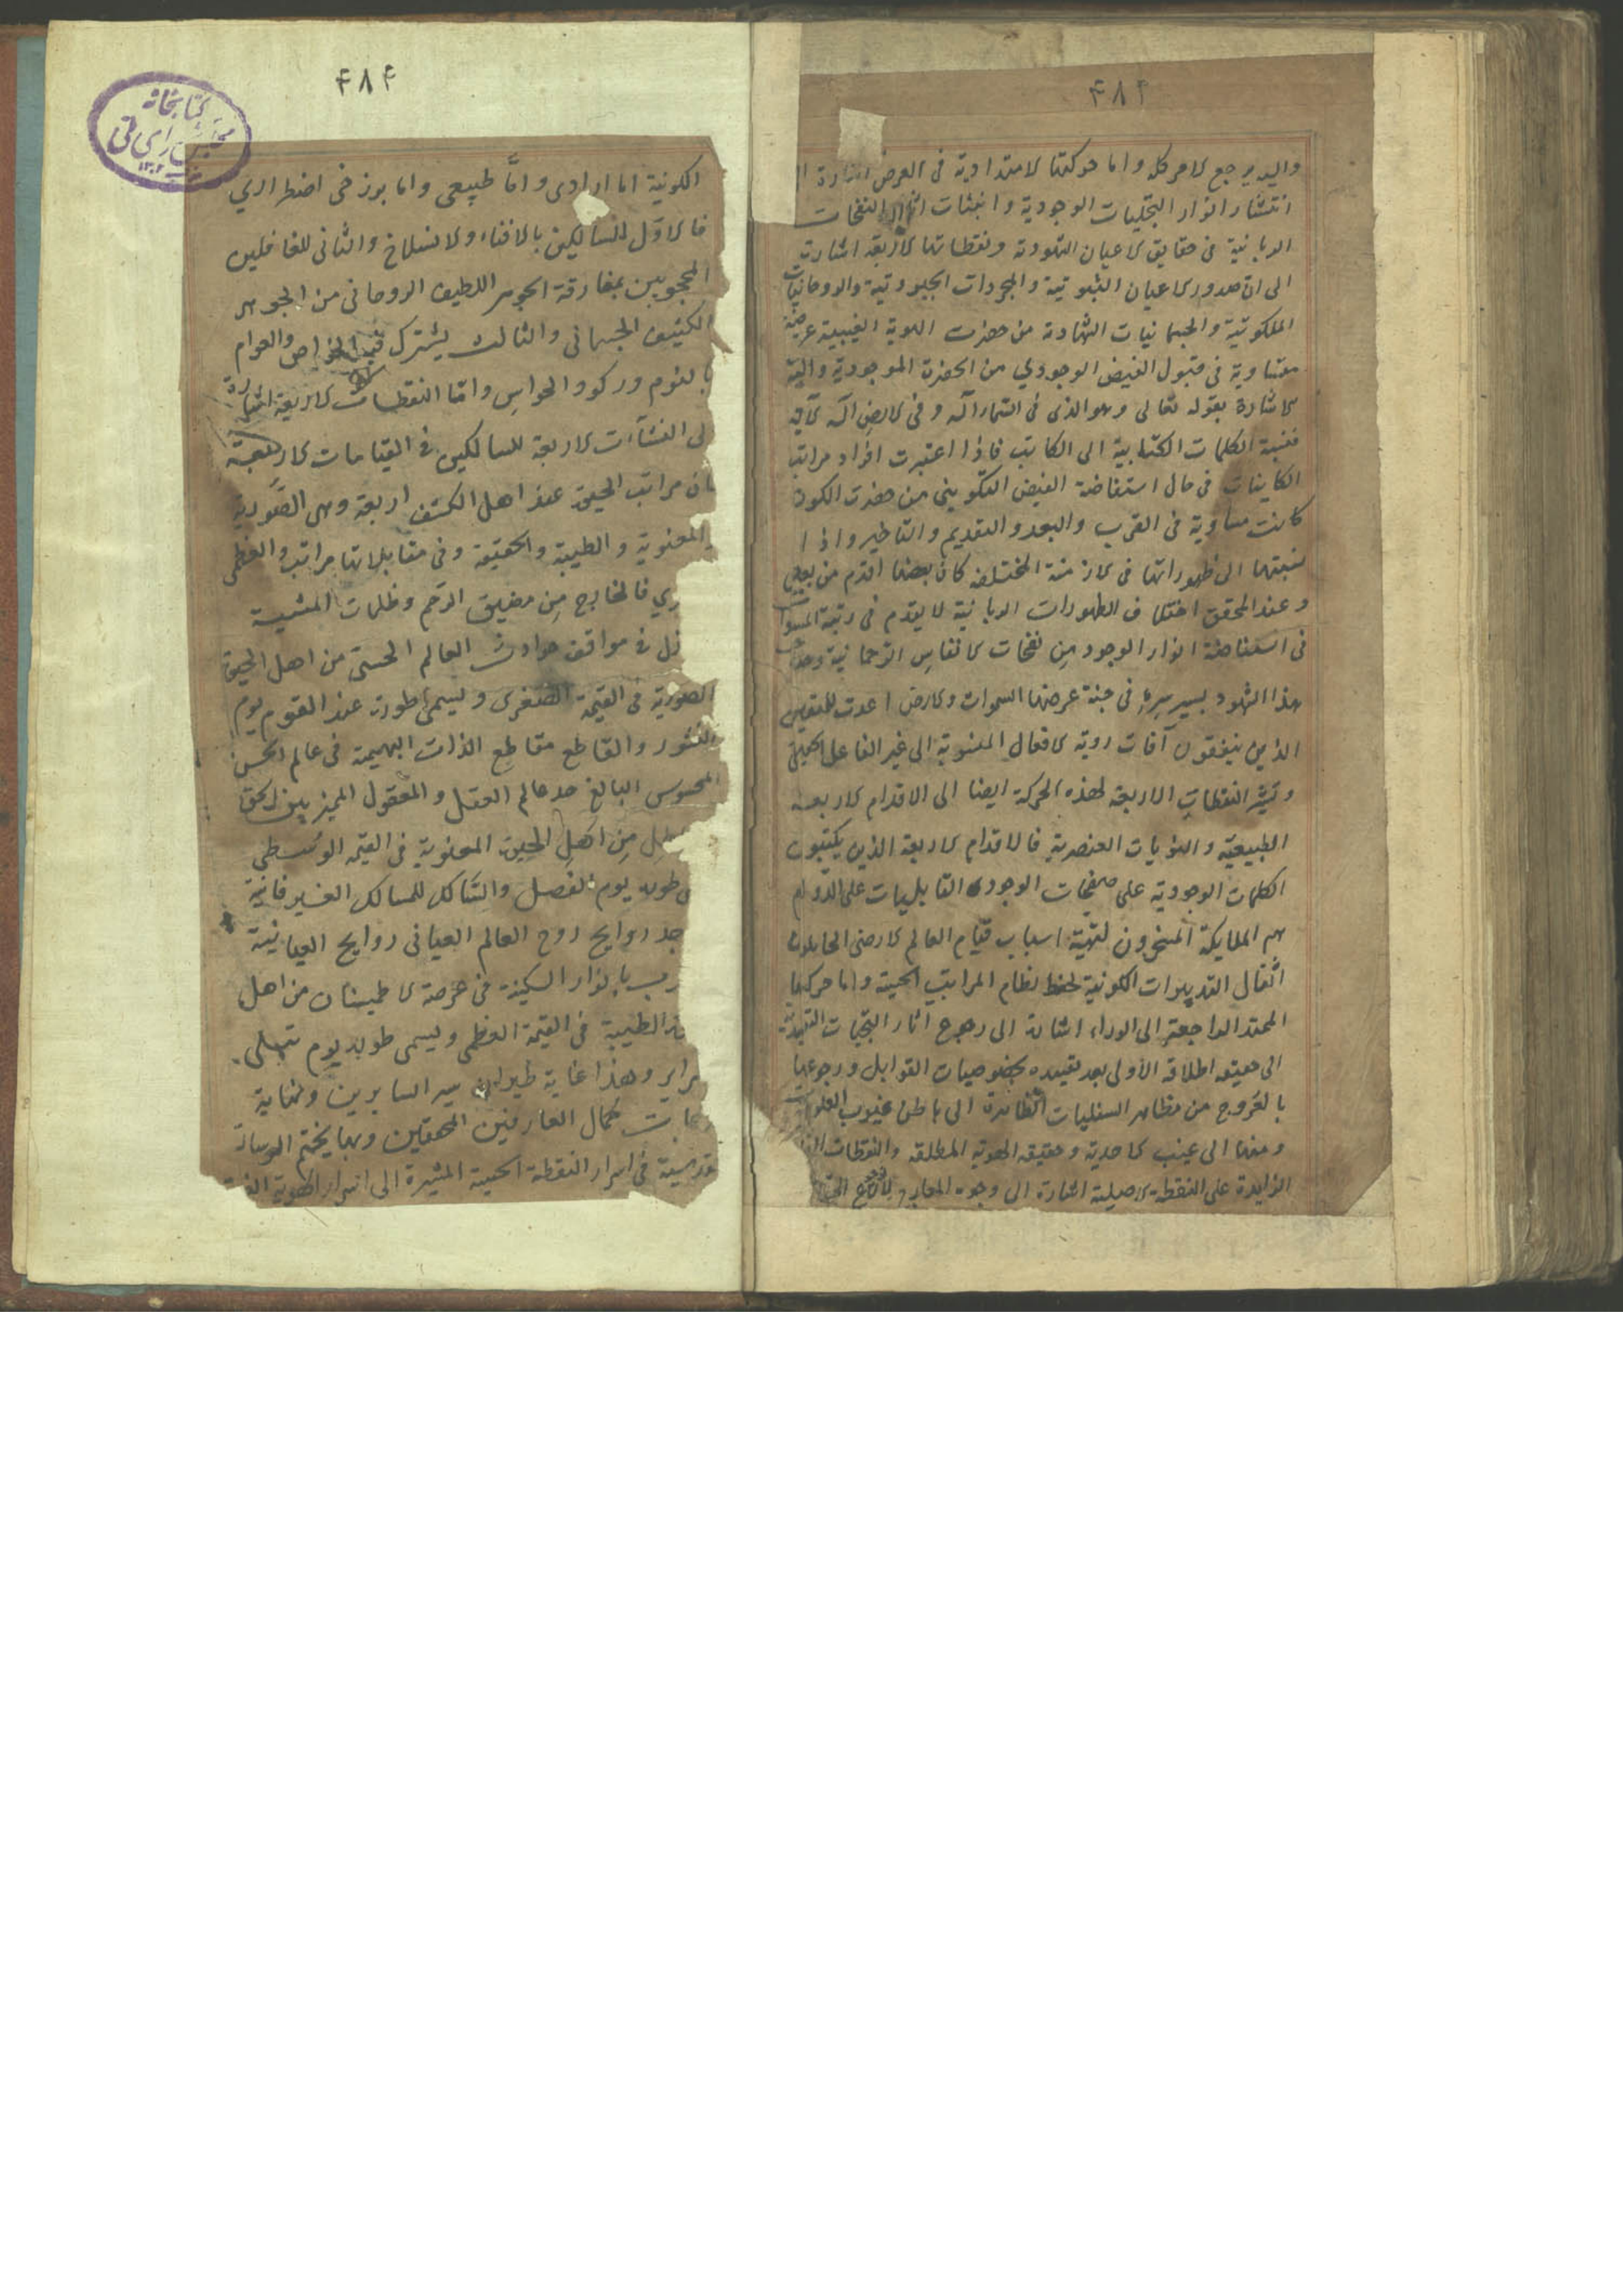 ۴۸۴
واليه يرجع الامر كله واما حركتها الامتدادية فى العرض اشارة
انتشار انوار التجليات الوجودية وانبثاث النفحات
الربانية فى حقايق الاعيان الشهودية ونقطاتها الاربعة اشارة
الى ان صدور الاعيان الثبوتية والمجردات الجبروتية والروحانيات
الملكوتية والجسمانيات الشهادة من حضرت الهوية الغيبية
متساوية فى قبول الفيض الوجودي من الحضرة الموجودية واليه
الاشارة بقوله تعالى وهو الذى فى السماء اله وفى الارض اله الآية
فنسبة الكلمات الكتابية الى الكاتب فاذا اعتبرت افراد مراتب
الكاينات فى حال استفاضة الفيض التكوينى من حضرت الكون
كانت مساوية فى القرب والبعد والتقديم والتاخير واذا
نسبتها الى ظهوراتها فى الازمنة المختلفة كان بعضها اقدم من بعض
وعند المحقق اختلاف الظهورات الربانية لا يقدم فى رتبة
فى استفاضة انوار الوجود مِن نفحات الانفاسِ الرحمانية
هذا الشهود يسير سره فى جنة عرضها السموات والارض اعدت للمتقين
الذين ينفقون آفات روية الافعال المنسوبة الى غير الفاعل الحقيقى
وتشير النقطاتِ الاربعة لهذه الحركة ايضا الى الاقدام الاربعة
الطبيعيّة والقويات العنصرية فالاقدام الاربعة الذين يكتبون
الكلمات الوجودية على صفحات الوجود القابليات على الدوام
هم الملايكة المسخرون لتهية اسباب قيام العالم الارضى الحاملون
اثقال التدبيرات الكونية لحفظ نظام المراتب الحسية واما حركتها
الممتد الراجعة الى الوراء اشارة الى رجوع اثار التجليات
الى حقيقه اطلاقه الأولى بعد تقيده بخصوصيات القوابل ورجوعها
بالعَروج من مظاهر السفليات الظاهرة الى باطن غيوب العلويات
ومنها الى غيب الاحدية وحقيقه الهوية المطلقه والنقطات
الزايدة على النقطة الاصلية اشارة الى وجوه المعارج
۴۸۴
كتابخانه
الكونية اما ارادى وامَّا طبيعى واما برزخى اضطرارى
فالاوّل للسالكين بالافناء والانسلاخ والثانى للغافلين
المحجوبين بمفارقة الجوهر اللطيف الروحانى من الجوهر
الكثيف الجسمانى والثالث يشترك فيه الخواص والعوام
بالنوم وركود الحواسِ وامّا النقطات الاربعة اشارة
لى النشآت الاربعة للسالكين فى القيامات الاربعة
ان مراتب الحيوة عند اهل الكشف اربعة وهى الصّورية
المعنوية والطيبة والحقيقة وفى مقابلاتها مراتب والعظمى
ري فالخارج مِن مضيق الرّحم وظلمات المشيمة
زل فى مواقف حوادث العالم الحسىّ من اهل الحيوة
الصورية فى القيمة الصّغرى ويسمى طوره عند القوم يوم
النشور والقاطع مقاطع الذات البهيمة فى عالم الحسن
المحسوس البالغ حد عالم العقل والمعقول المميز بين الحق
مِن اهلِ الحيوة المعنوية فى القيمه الوسطى
طوره يوم الفصل والسّالك للمسالك الغير فانية
جد روايح روح العالم العيانى روايح العيانية
رب بانوار السكينة فى عرصة الاطمينان من اهل
الطيبة فى القيمة العظمى ويسمى طوره يوم تبلى
سراير وهذا غاية طيران سير السايرين ونهاية
كمال العارفين المحققين وبها يختم الرسالة
قدسية فى اسرار النقطة الحسية المشيرة الى اسرار الهوية